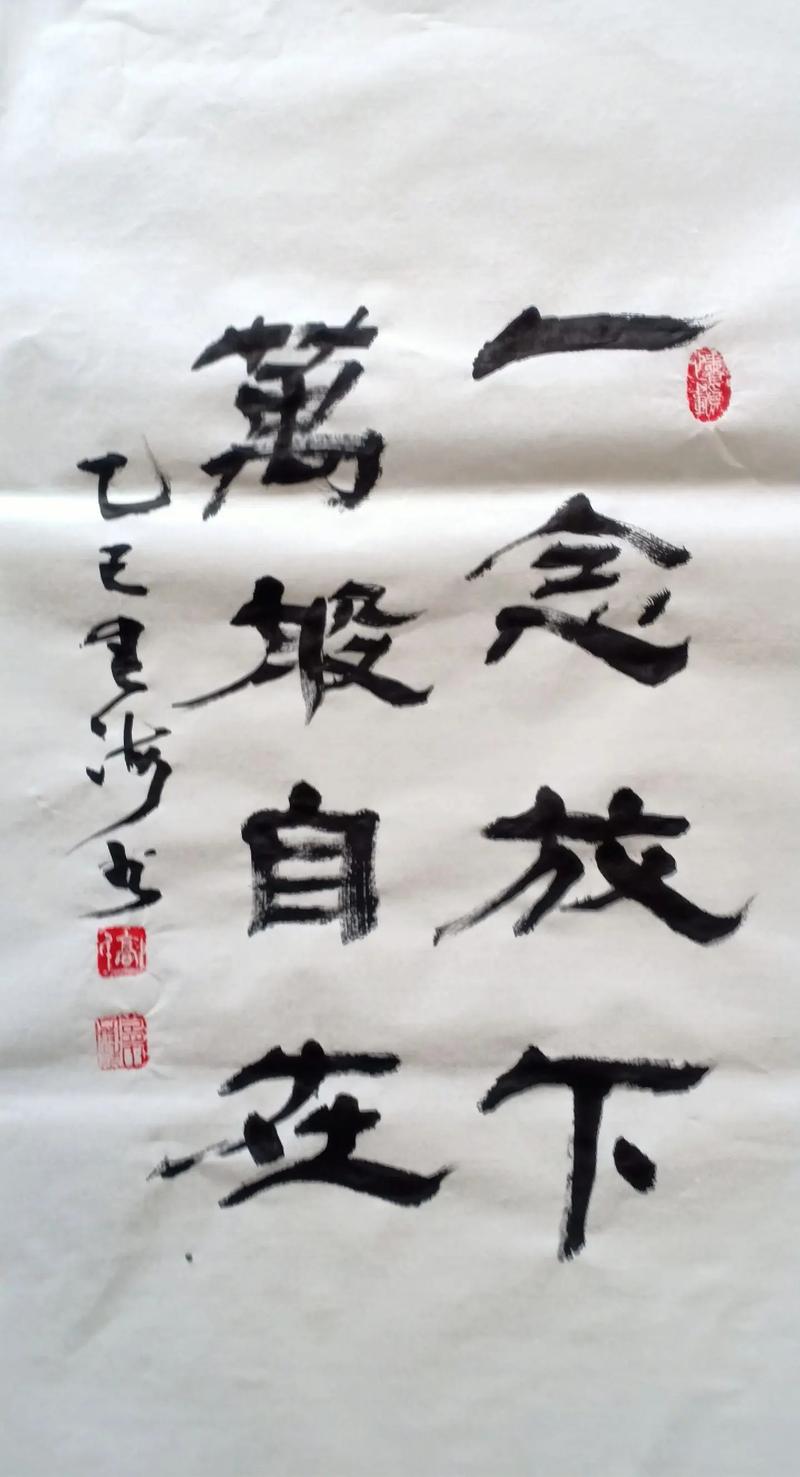 一念放下
萬般自在
乙巳 海书